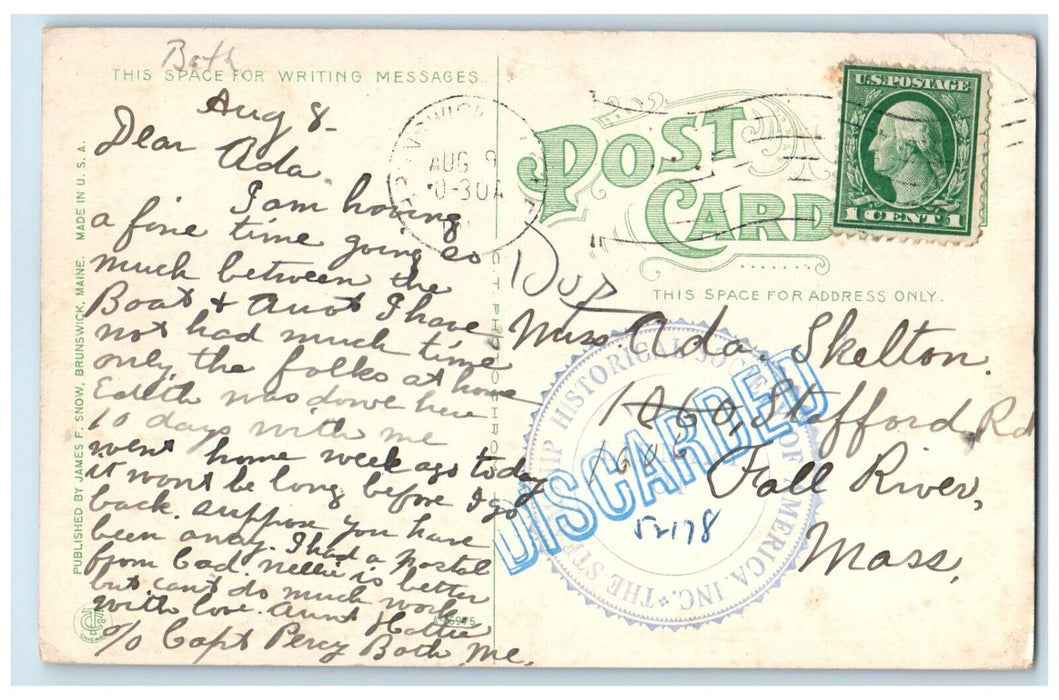 Bath
THIS SPACE FOR WRITING MESSAGES
Aug 8.
Dear Ada.
I am having
a fine time going so
much between the
Boat & Aunt I have
not had much time
only the folks at home
Edith was down here
10 days with me
went home week ago today
it wont be long before I go
back. suppose you have
been away. I had a postal
from Cad. Nellie is better
but can't do much work
with love. Aunt Hattie
c/o Capt Percy Bath Me.
PUBLISHED BY JAMES F. SNOW, BRUNSWICK, MAINE. MADE IN U.S.A.
AUG 9
0-30A
POST CARD
U.S. POSTAGE
1 CENT 1
THIS SPACE FOR ADDRESS ONLY.
Dup
Miss. Ada. Skelton.
1260, Stafford Rd
Fall River,
Mass.
THE STEAMSHIP HISTORICAL SOCIETY OF AMERICA, INC.
DISCARDED
52178